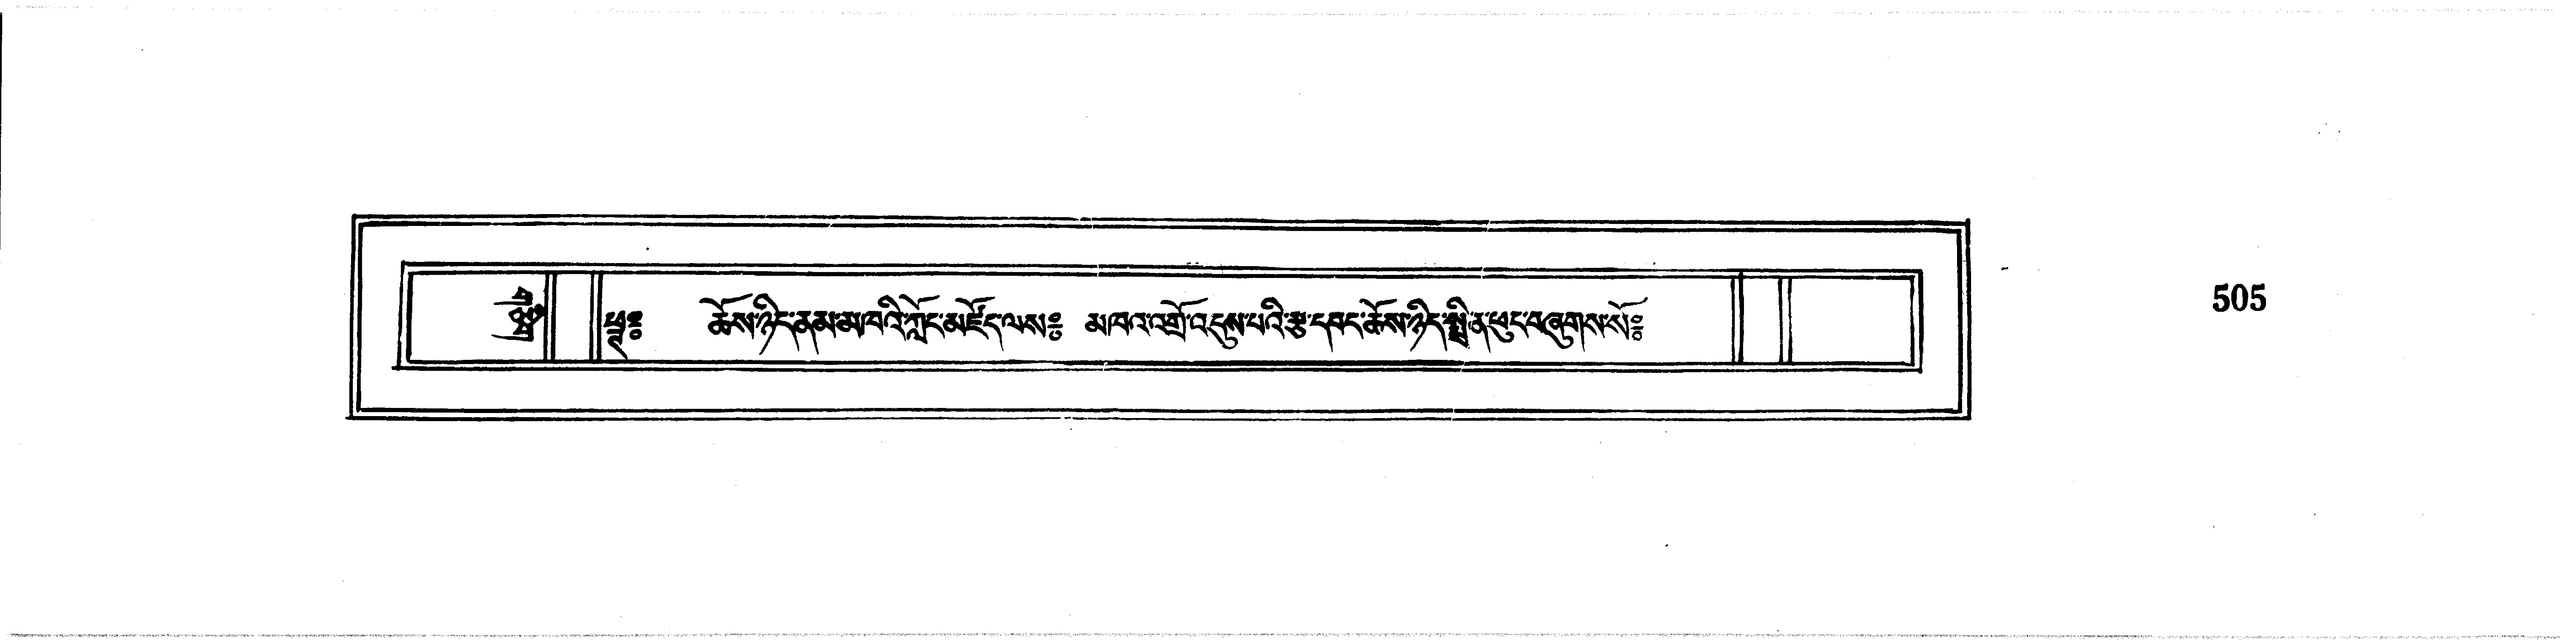 ཕྱཿ ཆོས་ཉིད་ནམ་མཁའི་ཀློང་མཛོད་ལསཿ མཁའ་འགྲོ་འདུས་པའི་རྩ་དབང་ཆོས་ཉིད་སྨིན་ཕུང་བཞུགས་སོཿ
505